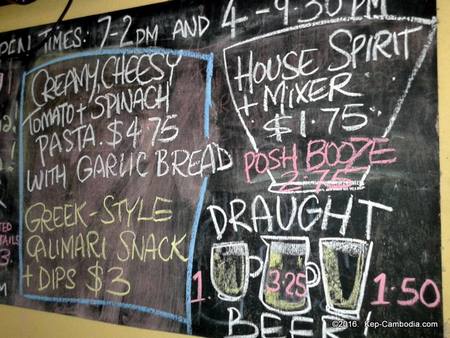 PEN TIMES: 7-2PM AND 4-9:30 PM
CREAMY, CHEESY
TOMATO + SPINACH
PASTA. $4.75
WITH GARLIC BREAD
GREEK-STYLE
CALIMARI SNACK
+ DIPS $3
HOUSE SPIRIT
+ MIXER
$1.75
POSH BOOZE
2.75
DRAUGHT
1. 3.25 1.50
BEER!
©2016. Kep-Cambodia.com